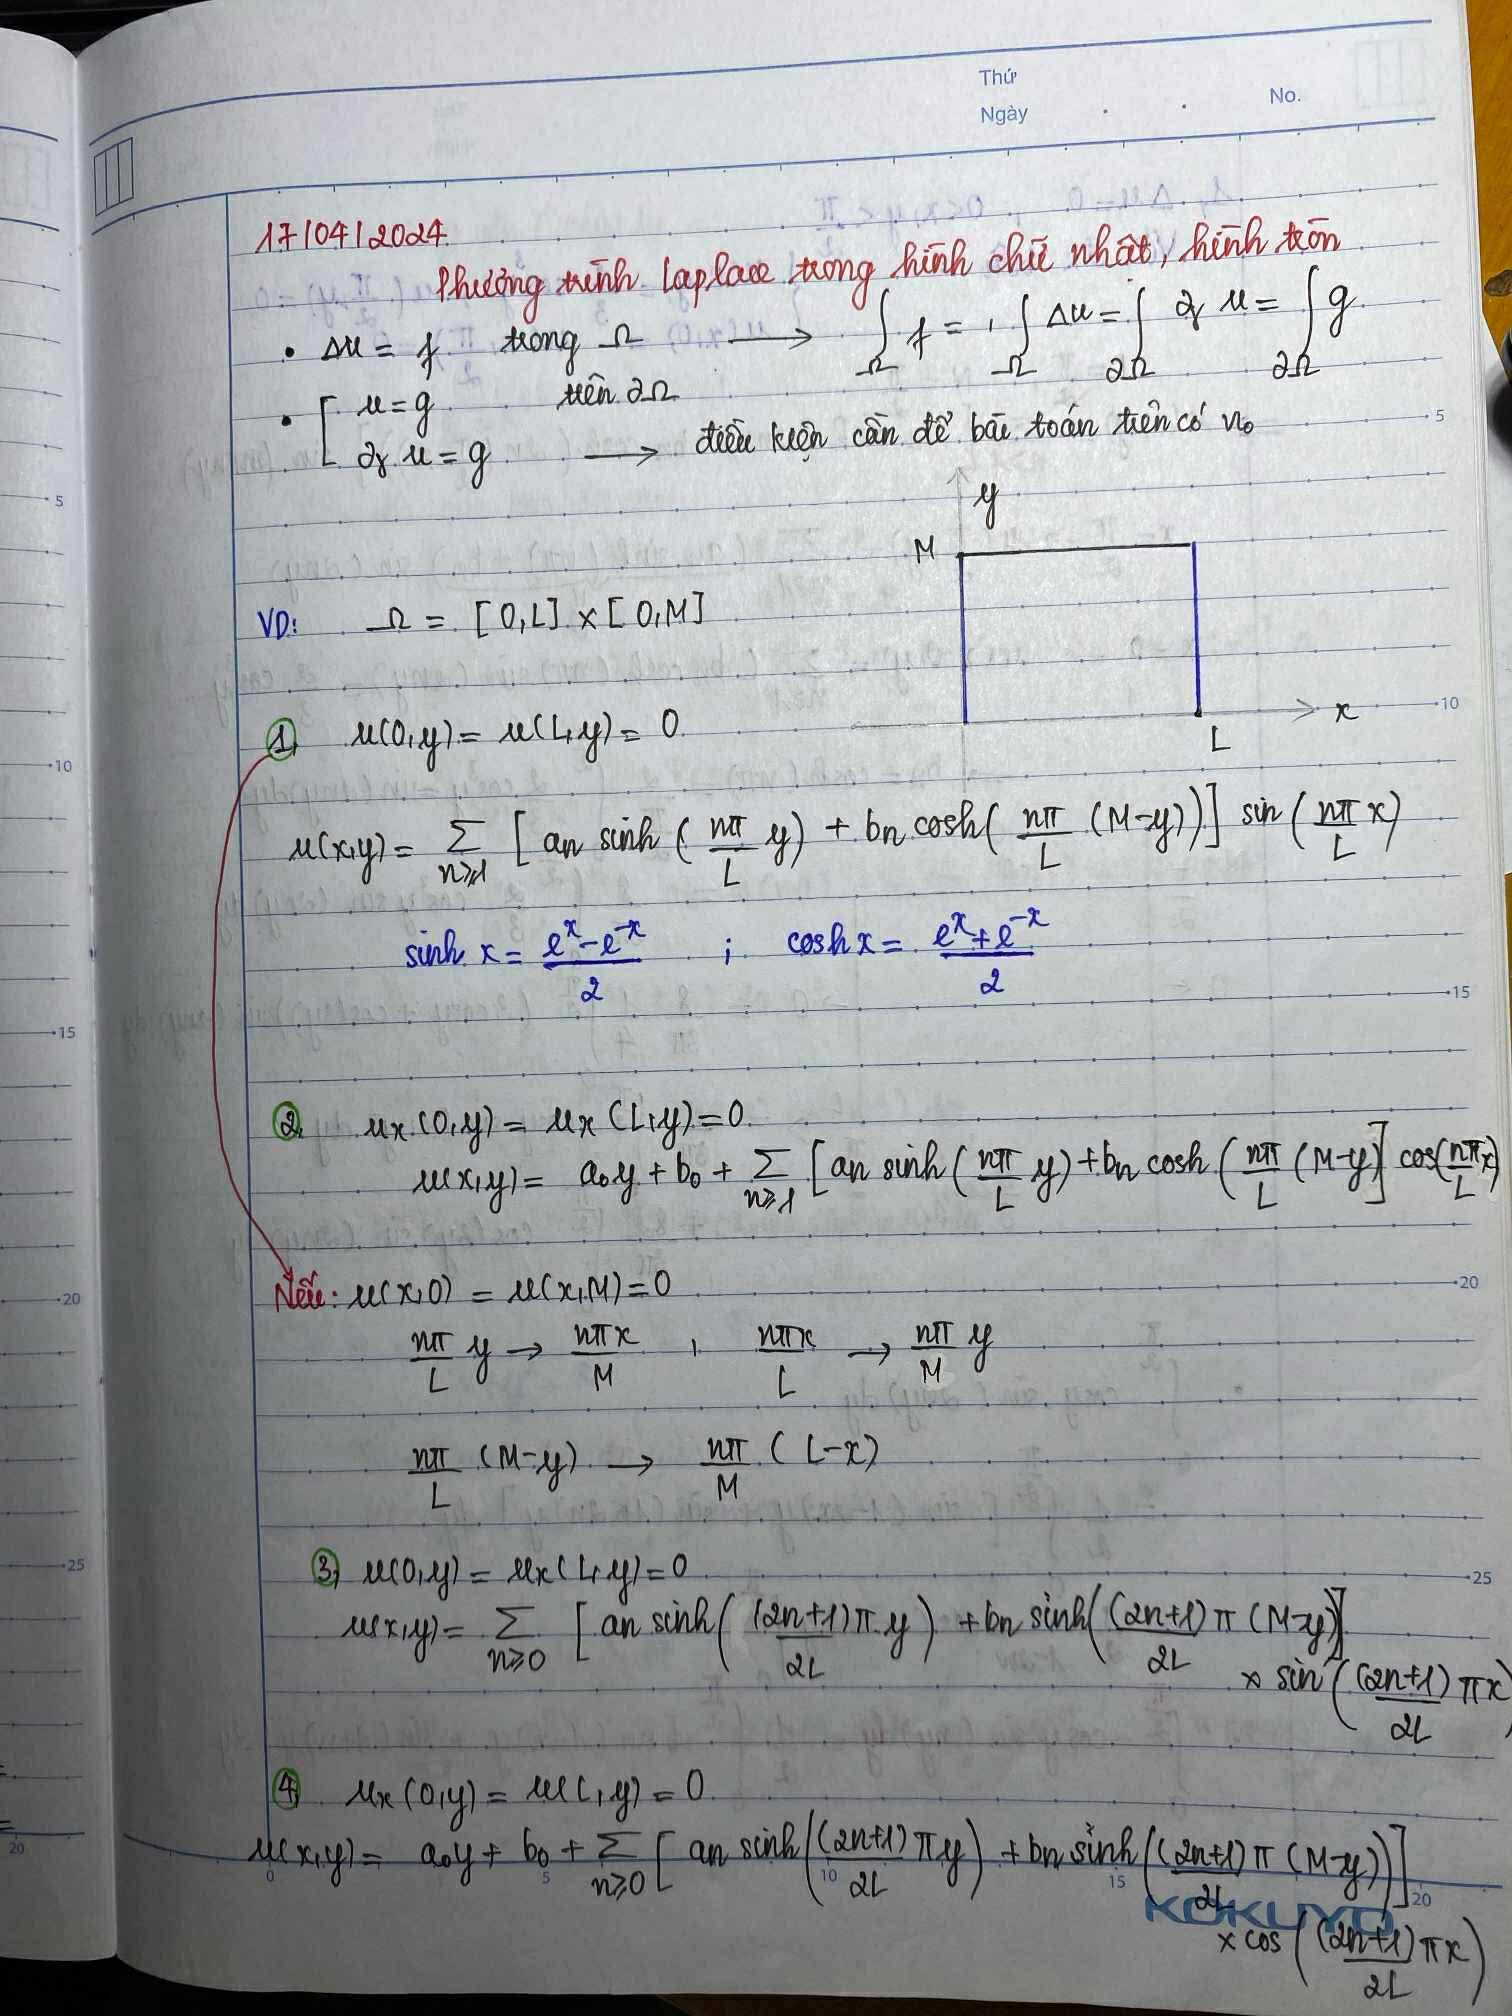 Thứ
Ngày . . No.
17/04/2024
Phương trình Laplace trong hình chữ nhật, hình tròn
• Δu = f trong Ω → ∫_Ω f = ∫_Ω Δu = ∫_∂Ω ∂γ u = ∫_∂Ω g
• [ u = g trên ∂Ω
∂γ u = g → điều kiện cần để bài toán trên có n₀
y
M
VD: Ω = [0,L] × [0,M]
x
L
1, u(0,y) = u(L,y) = 0
u(x,y) = Σ_{n≥1} [an sinh (nπ/L y) + bn cosh( nπ/L (M-y))] sin (nπ/L x)
sinh x = (e^x - e^-x)/2 ; cosh x = (e^x + e^-x)/2
2, ux (0,y) = ux (L,y) = 0
u(x,y) = a₀y + b₀ + Σ_{n≥1} [an sinh (nπ/L y) + bn cosh (nπ/L (M-y)] cos(nπ/L x)
Nếu: u(x,0) = u(x,M) = 0
nπ/L y → nπx/M , nπx/L → nπ/M y
nπ/L (M-y) → nπ/M (L-x)
3, u(0,y) = ux(L,y) = 0
u(x,y) = Σ_{n≥0} [an sinh( (2n+1)π/2L y) + bn sinh( (2n+1)/2L π (M-y)]
× sin ( (2n+1)/2L πx)
4, ux (0,y) = u(L,y) = 0
u(x,y) = a₀y + b₀ + Σ_{n≥0} [an sinh( (2n+1)/2L πy) + bn sinh( (2n+1)π/2L (M-y))]
× cos ( (2n+1)/2L πx)
KOKUYO